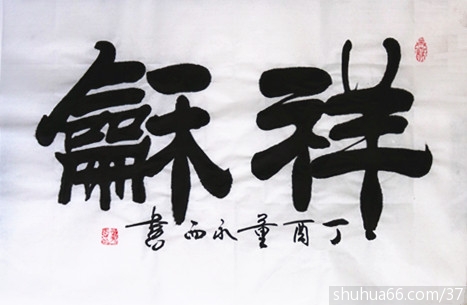 祥龢
丁酉董永西書
shuhua66.com/37